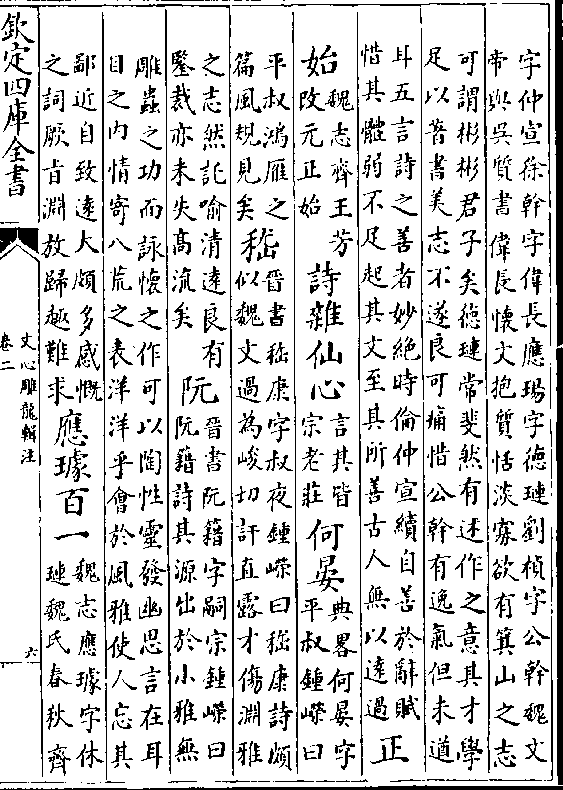 字仲宣徐幹字偉長應瑒字德璉劉楨字公幹魏文
帝與吳質書偉長懷文抱質恬淡寡欲有箕山之志
可謂彬彬君子矣德璉常斐然有述作之意其才學
足以著書美志不遂良可痛惜公幹有逸氣但未遒
耳五言詩之善者妙絕時倫仲宣續自善於辭賦
惜其體弱不足起其文至其所善古人無以遠過
正
始
魏志齊王芳
改元正始
詩雜仙心
言其皆
宗老莊
何晏
典畧何晏字
平叔鍾嶸曰
平叔鴻雁之
篇風規見矣
嵇
晉書嵇康字叔夜鍾嶸曰嵇康詩頗
似魏文過為峻切訐直露才傷淵雅
之志然託喻清遠良有
鑒裁亦未失高流矣
阮
晉書阮籍字嗣宗鍾嶸曰
阮籍詩其源出於小雅無
雕蟲之功而詠懷之作可以陶性靈發幽思言在耳
目之內情寄八荒之表洋洋乎會於風雅使人忘其
鄙近自致遠大頗多感慨
之詞厥旨淵放歸趣難求
應璩百一
魏志應璩字休
璉魏氏春秋齊
欽定四庫全書
文心雕龍輯注
卷二
六